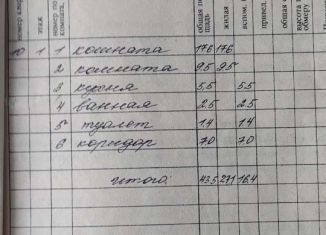 этаж
общая пл
щадь
жилая
вспом.
привед.
общая
высота
обмеру
10 1 1 комната 17.6 17.6
2 комната 9.5 9.5
3 кухня 5.5 5.5
4 ванная 2.5 2.5
5 туалет 1.4 1.4
6 коридор 7.0 7.0
итого: 43.5 27.1 16.4